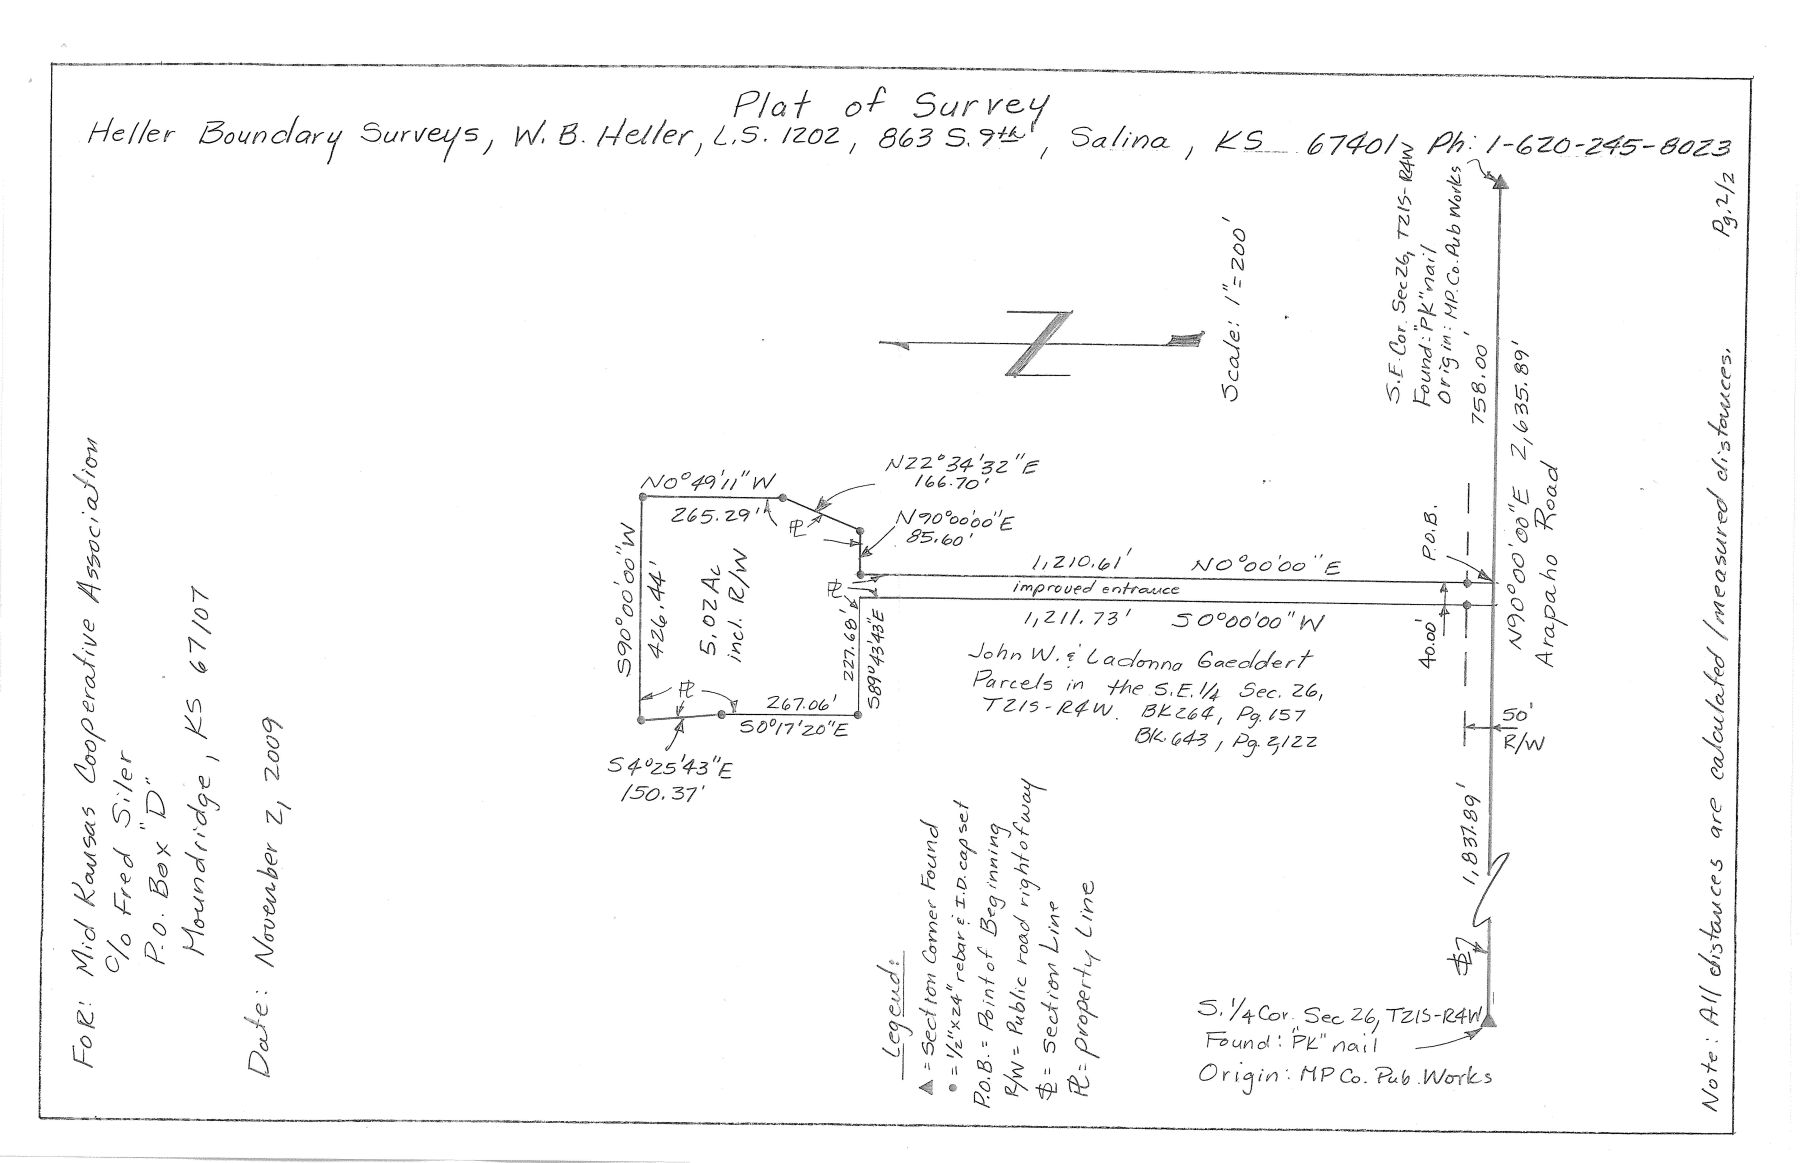 Plat of Survey
Heller Boundary Surveys, W. B. Heller, L.S. 1202, 863 S. 9th, Salina, KS 67401 Ph: 1-620-245-8023
Pg. 2/2
S.E. Cor. Sec 26, T21S-R4W
Found: "PK" nail
Origin: MP.Co. Pub Works
758.00'
N90°00'00"E 2,635.89'
Arapaho Road
Scale: 1"=200'
N
N22°34'32"E
166.70'
N0°49'11"W
265.29'
PL
N90°00'00"E
85.60'
S90°00'00"W
426.44'
5.02 Ac
incl. R/W
1,210.61' N0°00'00"E
improved entrance
1,211.73' S0°00'00"W
PL
P.O.B.
40.00'
227.68'
S89°43'43E
John W. & Ladonna Gaeddert
Parcels in the S.E. 1/4 Sec. 26,
T21S-R4W. BK 264, Pg. 157
BK 643, Pg. 2,122
PL
267.06'
S0°17'20"E
S4°25'43"E
150.37'
50'
R/W
1,837.89'
S. 1/4 Cor. Sec 26, T21S-R4W
Found: "PK" nail
Origin: MP Co. Pub. Works
Legend:
▲ = Section Corner Found
• = 1/2"x24" rebar & I.D. cap set
P.O.B. = Point of Beginning
R/W = Public road right of way
= Section Line
PL = Property Line
FOR: Mid Kansas Cooperative Association
c/o Fred Siler
P.O. Box "D"
Moundridge, KS 67107
Date: November 2, 2009
Note: All distances are calculated/measured distances.